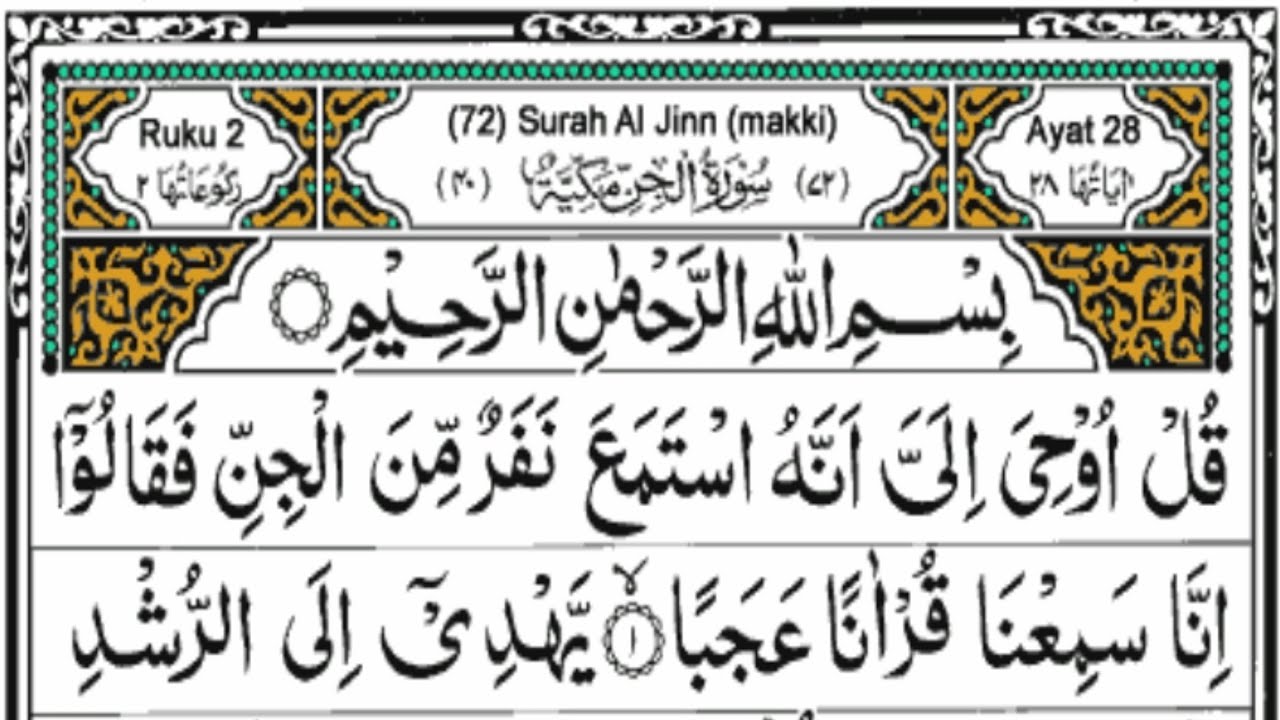 Ruku 2
رکوعاتها ۲
(72) Surah Al Jinn (makki)
(۷۲) سُوْرَةُ الْجِنِّ مَكِّيَّةٌ (۴۰)
Ayat 28
اٰيَاتُهَا ۲۸
بِسْمِ اللّٰهِ الرَّحْمٰنِ الرَّحِيْمِ
قُلْ اُوْحِيَ اِلَيَّ اَنَّهُ اسْتَمَعَ نَفَرٌ مِّنَ الْجِنِّ فَقَالُوْۤا
اِنَّا سَمِعْنَا قُرْاٰنًا عَجَبًا ۙ‏﴿۱﴾ يَّهْدِيْۤ اِلَى الرُّشْدِ